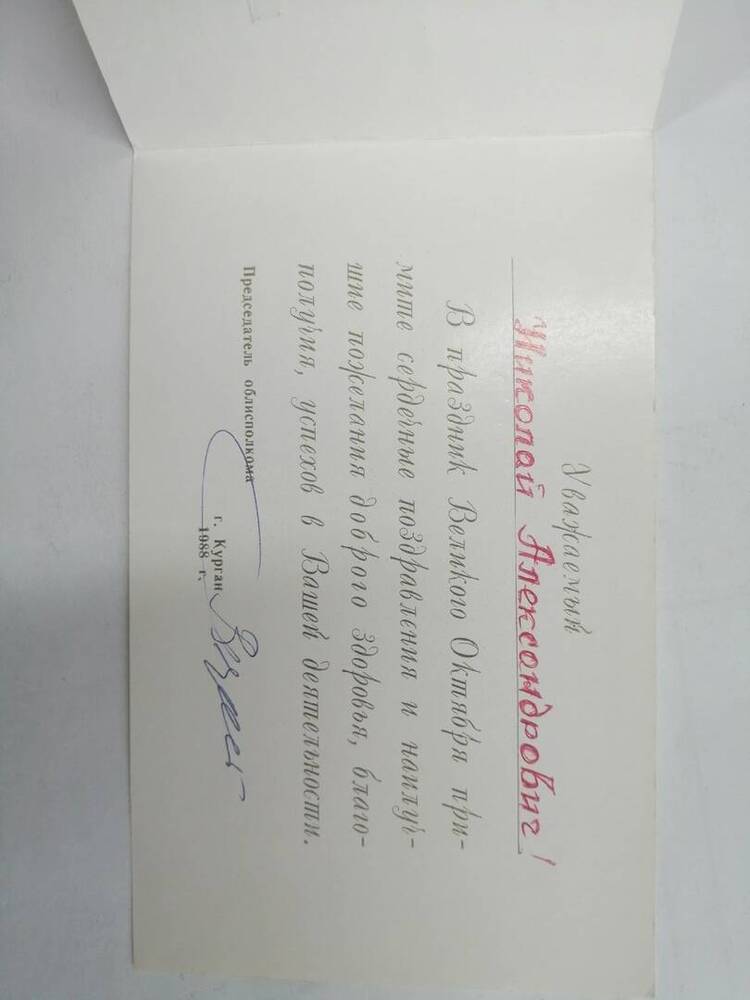 Уважаемый
Николай Александрович!
В праздник Великого Октября при-
мите сердечные поздравления и наилуч-
шие пожелания доброго здоровья, благо-
получия, успехов в Вашей деятельности.
Председатель облисполкома
г. Курган
1988 г.